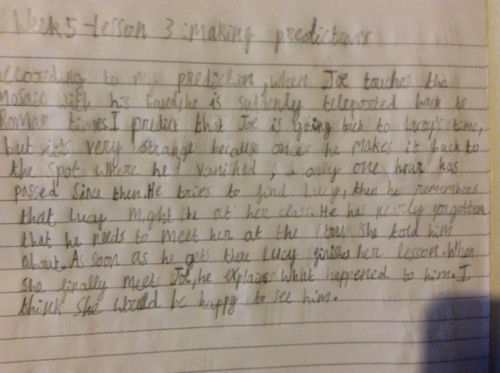 Week 5 - lesson 3 : making predictions
According to my prediction, when Joe touches the
mosaic with his he is suddenly teleported back to
Roman times. I predict that Joe is going back to Lucy's time,
but it's very strange because once he makes it back to
the spot where he vanished, only one hour has
passed since then. He tries to find Lucy, then he remembers
that Lucy might be at her class. He has nearly forgotten
that he needs to meet her at the she told him
about. As soon as he gets there Lucy finishes her lesson. When
she finally meets Joe, he explains what happened to him. I
think she would be happy to see him.